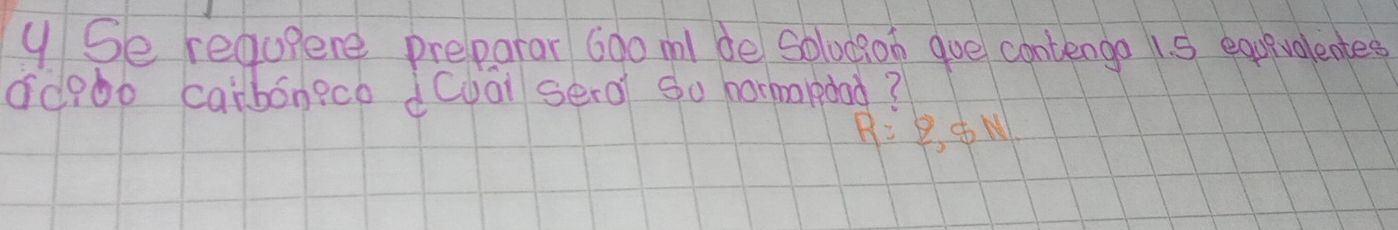 4 Se requiere preparar 600 ml de Solución que contenga 1.5 equivalentes
ácido carbónico ¿Cuál será su normalidad?
R: 2,5 N.